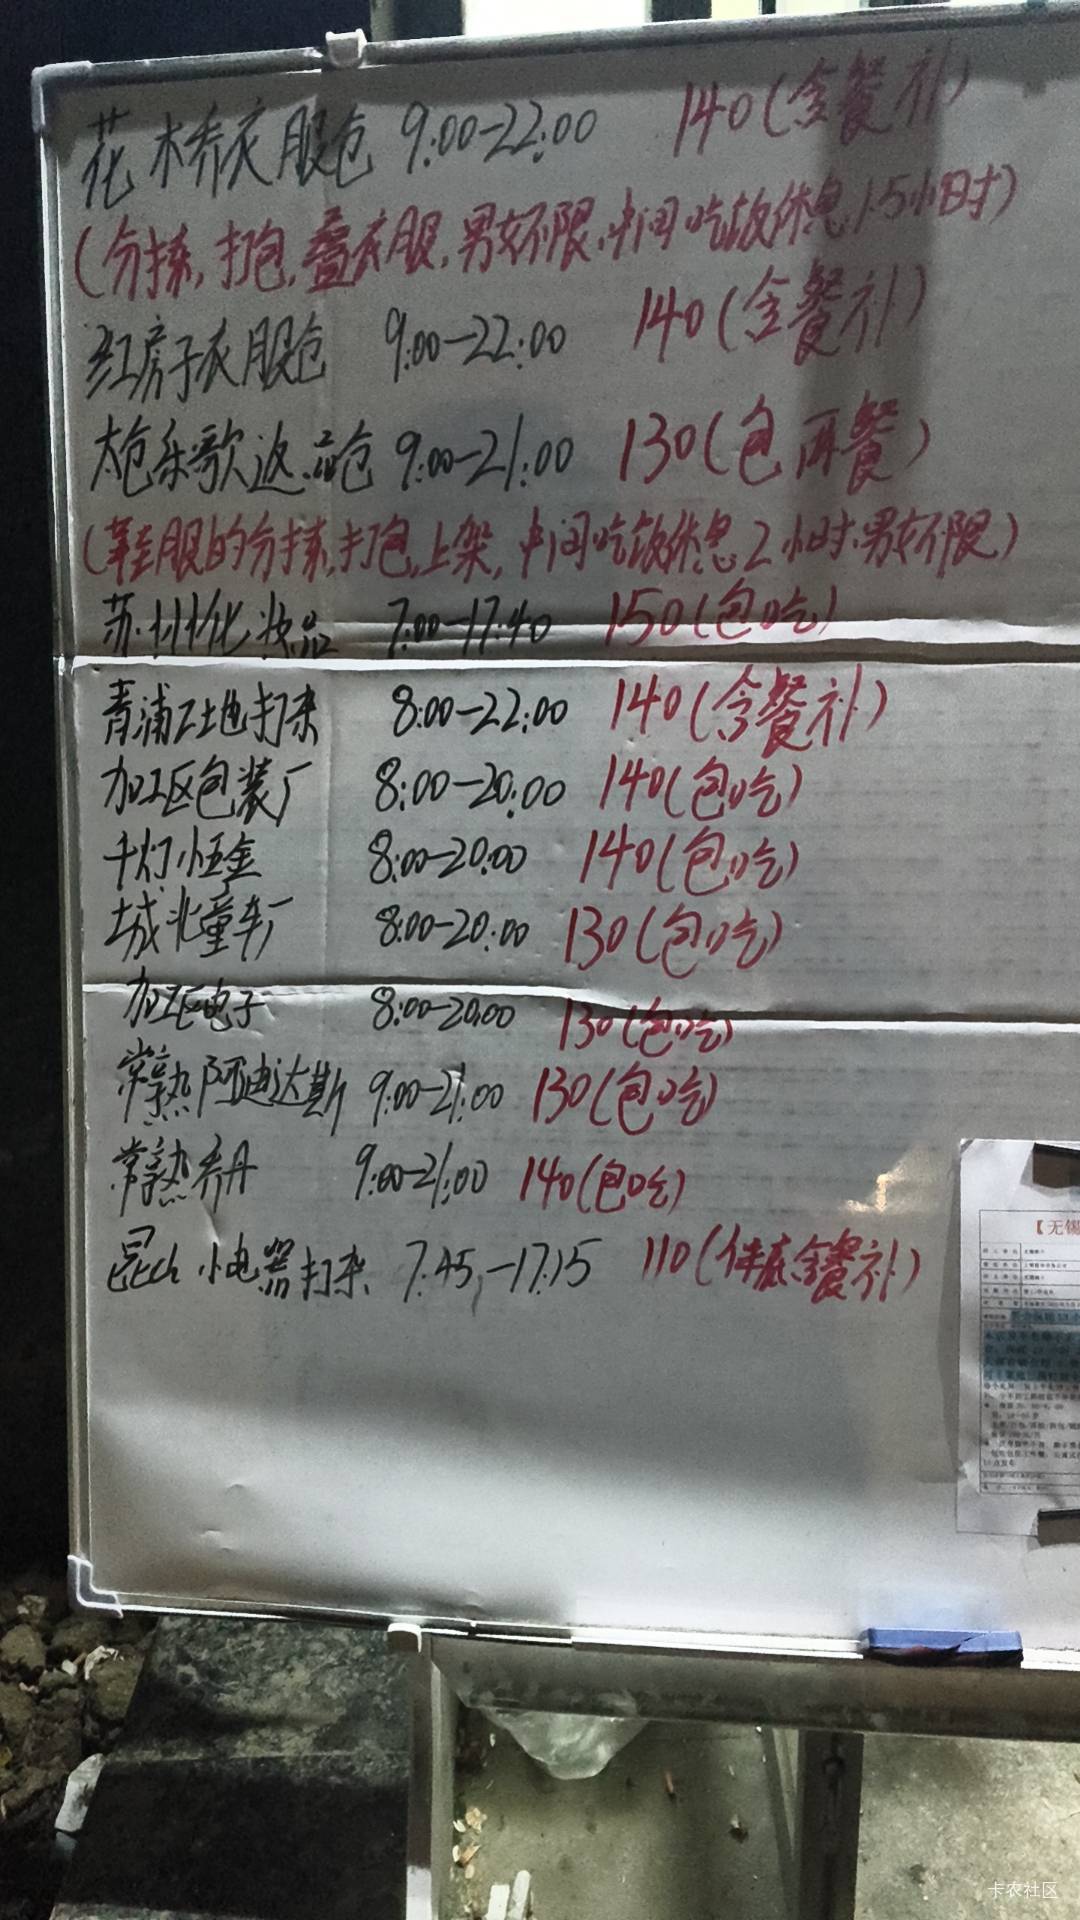 花木桥衣服仓 9:00-22:00 140(含餐补)
(分拣,打包,叠衣服,男女不限,中间吃饭休息1.5小时)
红房子衣服仓 9:00-22:00 140(含餐补)
太仓乐歌返品仓 9:00-21:00 130(包两餐)
(鞋服的分拣,打包,上架,中间吃饭休息2小时,男女不限)
苏州化妆品 7:00-17:40 150(包吃)
青浦工地打杂 8:00-22:00 140(含餐补)
加工区包装厂 8:00-20:00 140(包吃)
千灯小五金 8:00-20:00 140(包吃)
城北童车厂 8:00-20:00 130(包吃)
加工区电子 8:00-20:00 130(包吃)
常熟阿迪达斯 9:00-21:00 130(包吃)
常熟乔丹 9:00-21:00 140(包吃)
昆山小电器打杂 7:45-17:15 110(体底含餐补)
【无锡
卡农社区